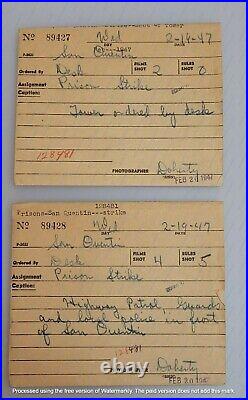 Nº 89427 Wed 2-19-47
DAY DATE
San Quentin
Ordered By Desk FILMS SHOT 2 BULBS SHOT 0
Assignment Prison Strike
Caption:
Tower ordered by desk
128481
PHOTOGRAPHER Doherty
FEB 20 1947
128481
Prisons-San Quentin---strike
Nº 89428 Wed 2-19-47
DAY DATE
San Quentin
Ordered By Desk FILMS SHOT 4 BULBS SHOT 5
Assignment Prison Strike
Caption:
Highway Patrol, Guards
and local police in front
of San Quentin
128481
Doherty
FEB 20 194
Processed using the free version of Watermarkly. The paid version does not add this mark.